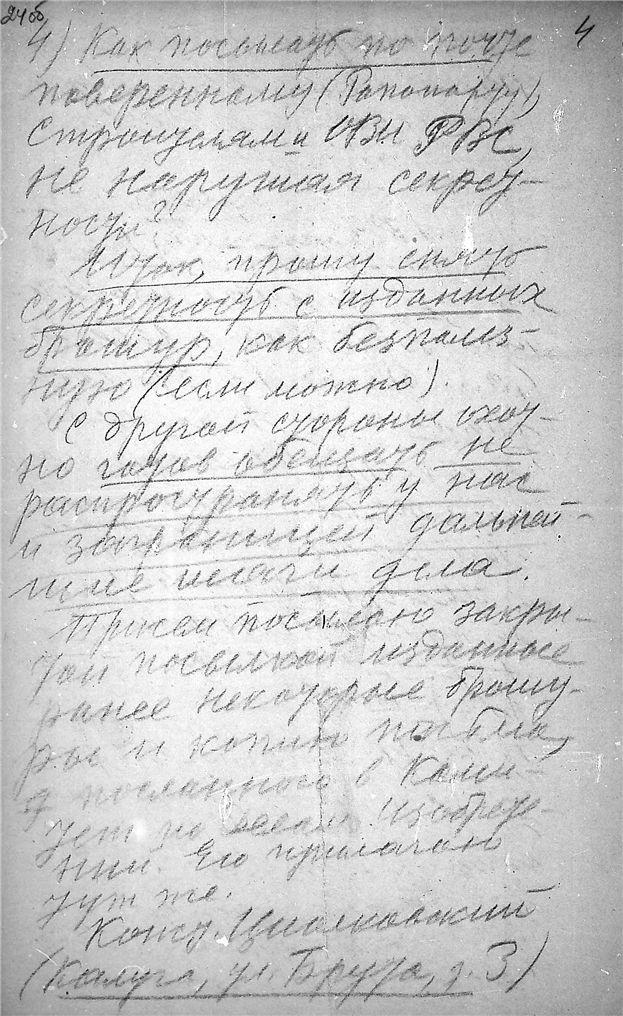 24об
4
4) Как посылать по почте
поверенному (Рапопорту),
строителям и УВИ РВС,
не нарушая секрет-
ности?
Итак, прошу снять
секретность с изданных
брошур, как безполез-
ную (если можно).
С другой стороны охот-
но готов обещать не
распространять у нас
и заграницей дальней-
шие шаги дела.
При сем посылаю закры-
той посылкой изданные
ранее некоторые брошу-
ры и копию письма,
посланного в Коми-
тет по делам изобрете-
ний. Его прилагаю
тут же.
Конст. Циолковский
(Калуга, ул. Брута, д. 3)